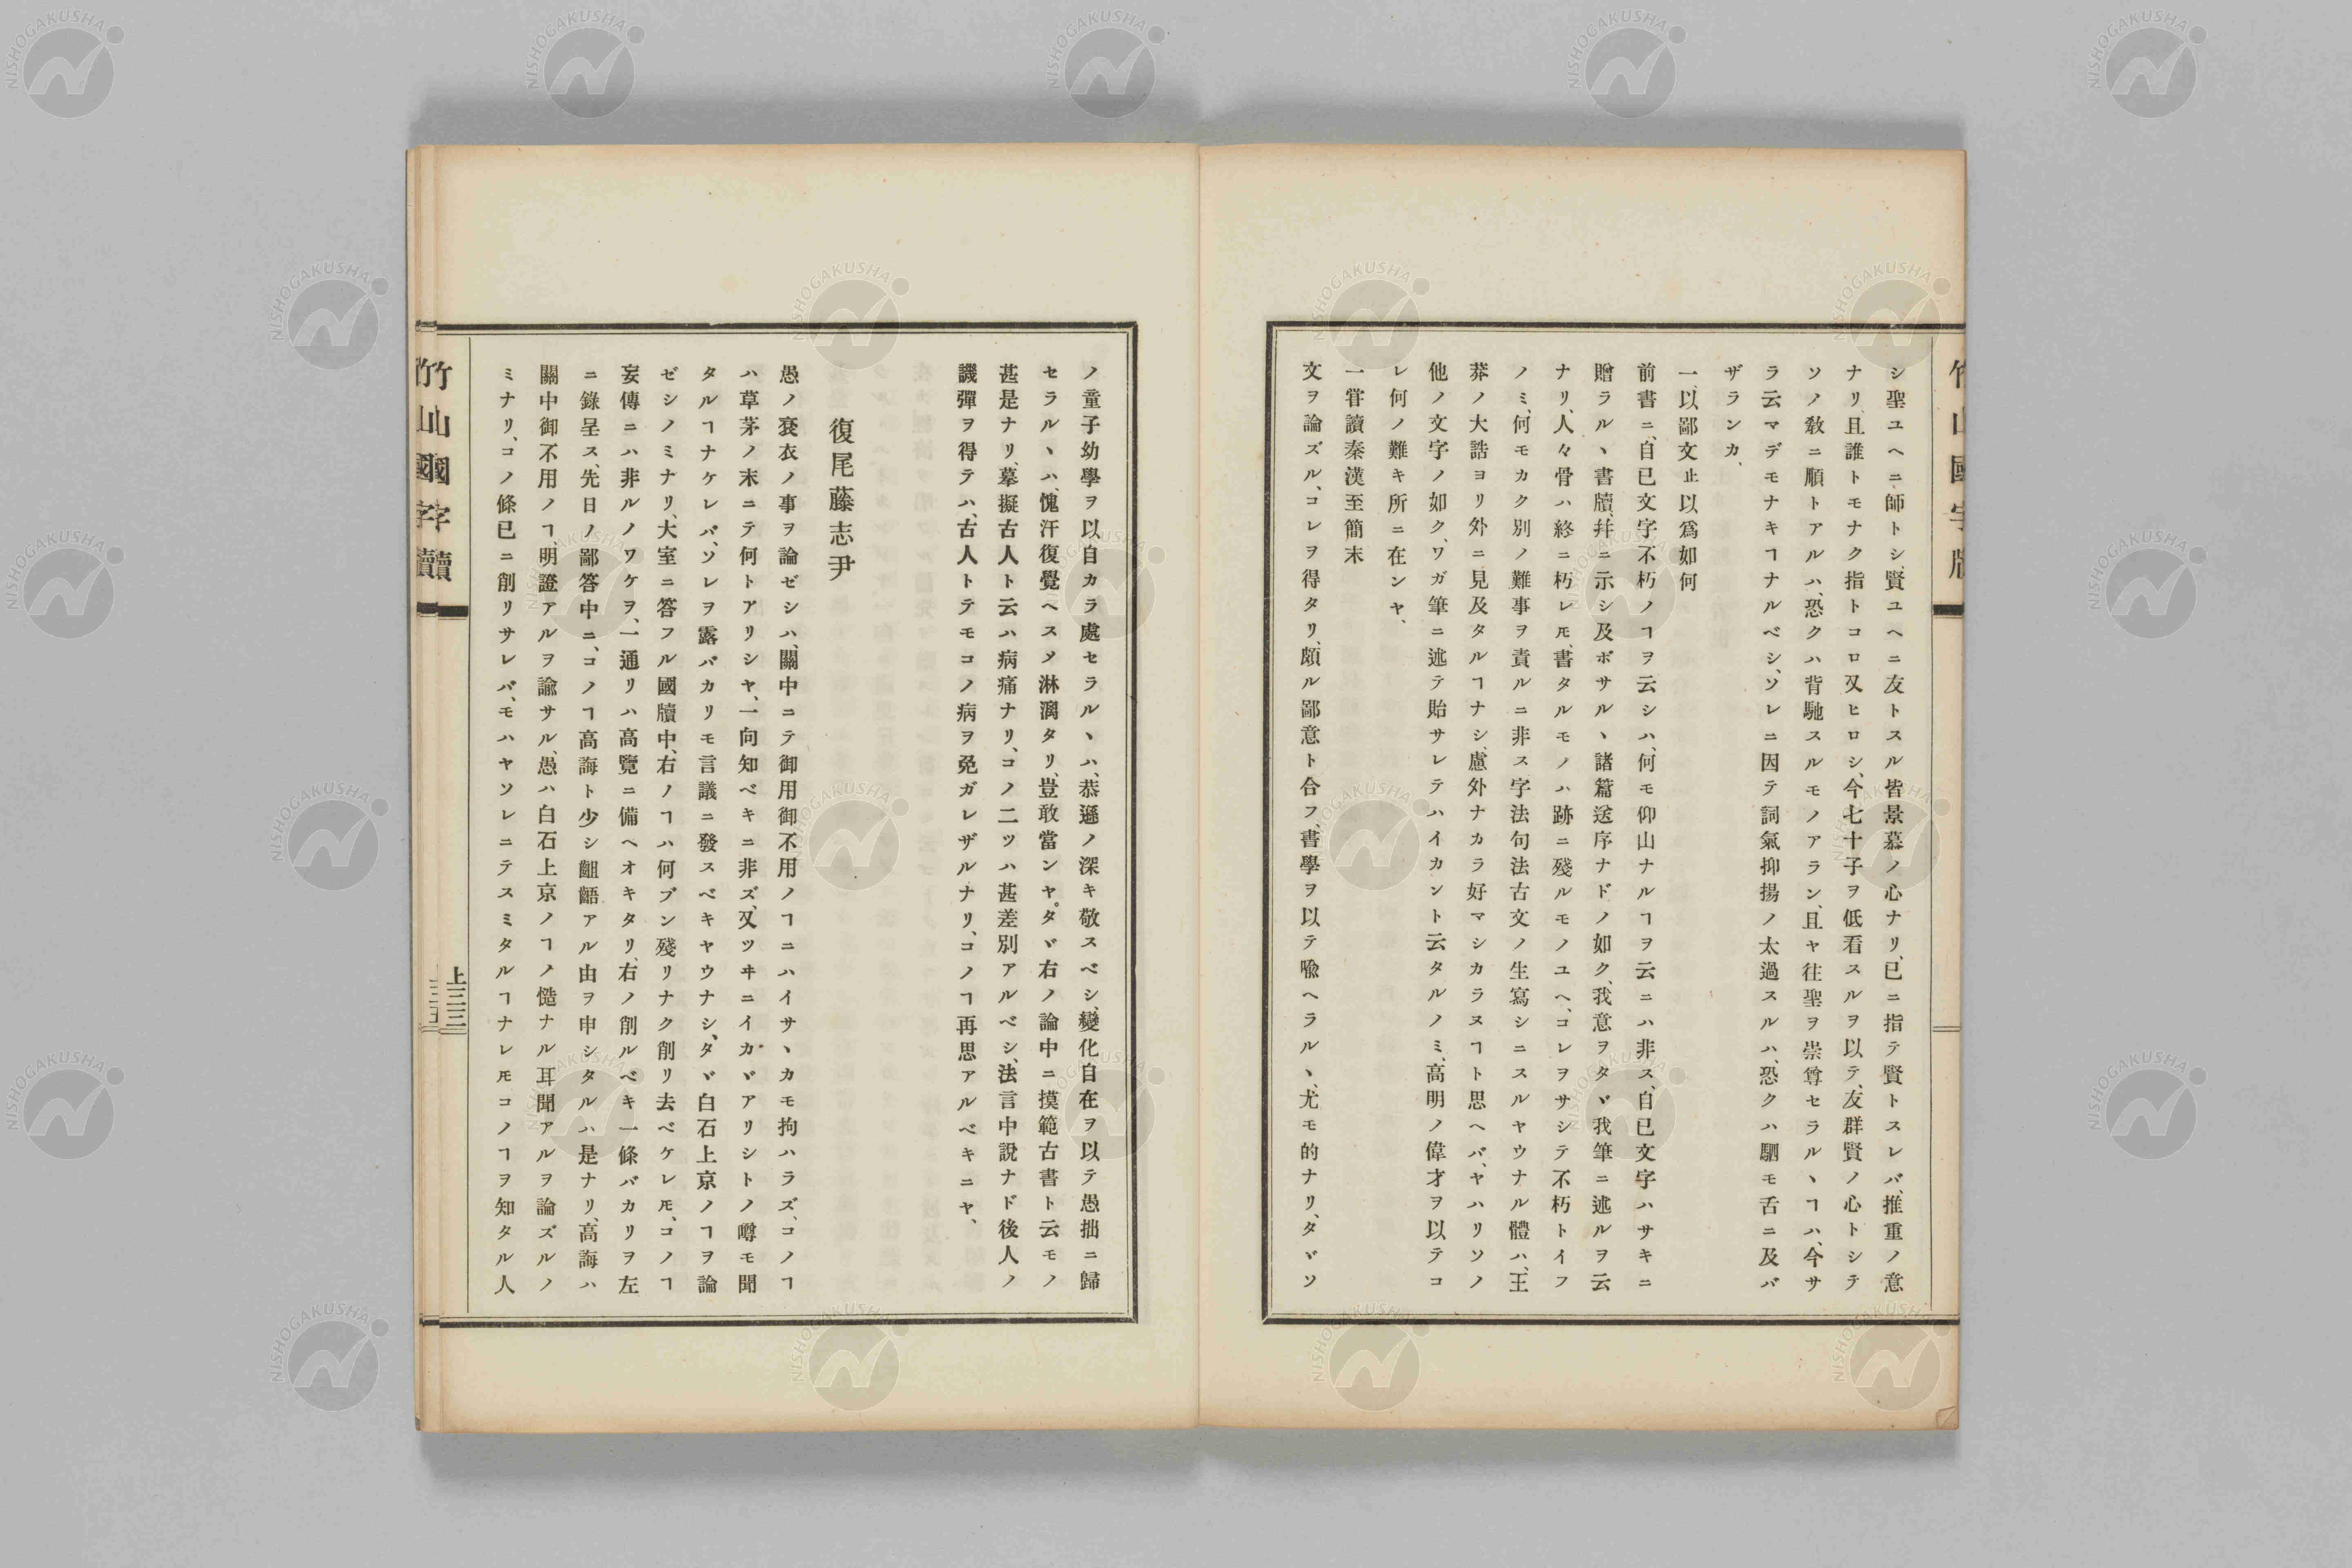 シ聖ユヘニ師トシ、賢ユヘニ友トスル皆景慕ノ心ナリ、已ニ指テ賢トスレバ、推重ノ意
ナリ、且誰トモナク指トコロ又ヒロシ、今七十子ヲ低看スルヲ以テ、友群賢ノ心トシテ
ソノ敎ニ順トアルハ、恐クハ背馳スルモノアラン、且ヤ往聖ヲ崇尊セラルヽヿハ、今サ
ラ云マデモナキヿナルベシ、ソレニ因テ詞氣抑揚ノ太過スルハ、恐クハ駟モ舌ニ及バ
ザランカ、
一、以鄙文止以爲如何
前書ニ、自已文字不朽ノヿヲ云シハ、何モ仰山ナルヿヲ云ニハ非ス、自已文字ハサキニ
贈ラルヽ書牘、幷ニ示シ及ボサルヽ諸篇送序ナドノ如ク、我意ヲタヾ我筆ニ述ルヲ云
ナリ、人々骨ハ終ニ朽レ𪜈、書タルモノハ跡ニ殘ルモノユヘ、コレヲサシテ不朽トイフ
ノミ、何モカク別ノ難事ヲ責ルニ非ス字法句法古文ノ生寫シニスルヤウナル體ハ、王
莽ノ大誥ヨリ外ニ見及タルヿナシ、慮外ナカラ好マシカラヌヿト思ヘバ、ヤハリソノ
他ノ文字ノ如ク、ワガ筆ニ述テ貽サレテハイカント云タルノミ、高明ノ偉才ヲ以テコ
レ何ノ難キ所ニ在ンヤ、
一嘗讀秦漢至簡末
文ヲ論ズル、コレヲ得タリ、頗ル鄙意ト合フ、書學ヲ以テ喩ヘラルヽ、尤モ的ナリ、タヾソ
ノ童子幼學ヲ以自カラ處セラルヽハ、恭遜ノ深キ敬スベシ、變化自在ヲ以テ愚拙ニ歸
セラルヽハ、愧汗復覺ヘスメ淋漓タリ、豈敢當ンヤ。タヾ右ノ論中ニ摸範古書ト云モノ
甚是ナリ、摹擬古人ト云ハ病痛ナリ、コノ二ツハ甚差別アルベシ、法言中說ナド後人ノ
譏彈ヲ得テハ、古人トテモコノ病ヲ免ガレザルナリ、コノヿ再思アルベキニヤ、
復尾藤志尹
愚ノ袞衣ノ事ヲ論ゼシハ、關中ニテ御用御不用ノヿニハイサヽカモ拘ハラズ、コノヿ
ハ草茅ノ末ニテ何トアリシヤ、一向知ベキニ非ズ、又ツヰニイカヾアリシトノ噂モ聞
タルヿナケレバ、ソレヲ露バカリモ言議ニ發スベキヤウナシ、タヾ白石上京ノヿヲ論
ゼシノミナリ、大室ニ答フル國牘中、右ノヿハ何ブン殘リナク削リ去ベケレ𪜈、コノヿ
妄傳ニハ非ルノワケヲ、一通リハ高覽ニ備ヘオキタリ、右ノ削ルベキ一條バカリヲ左
ニ錄呈ス、先日ノ鄙答中ニ、コノヿ高誨ト少シ齟齬アル由ヲ申シタルハ是ナリ、高誨ハ
關中御不用ノヿ、明證アルヲ諭サル、愚ハ白石上京ノヿノ慥ナル耳聞アルヲ論ズルノ
ミナリ、コノ條已ニ創リサレバ、モハヤソレニテスミタルヿナレ𪜈コノヿヲ知タル人
竹山國字牘
上三三